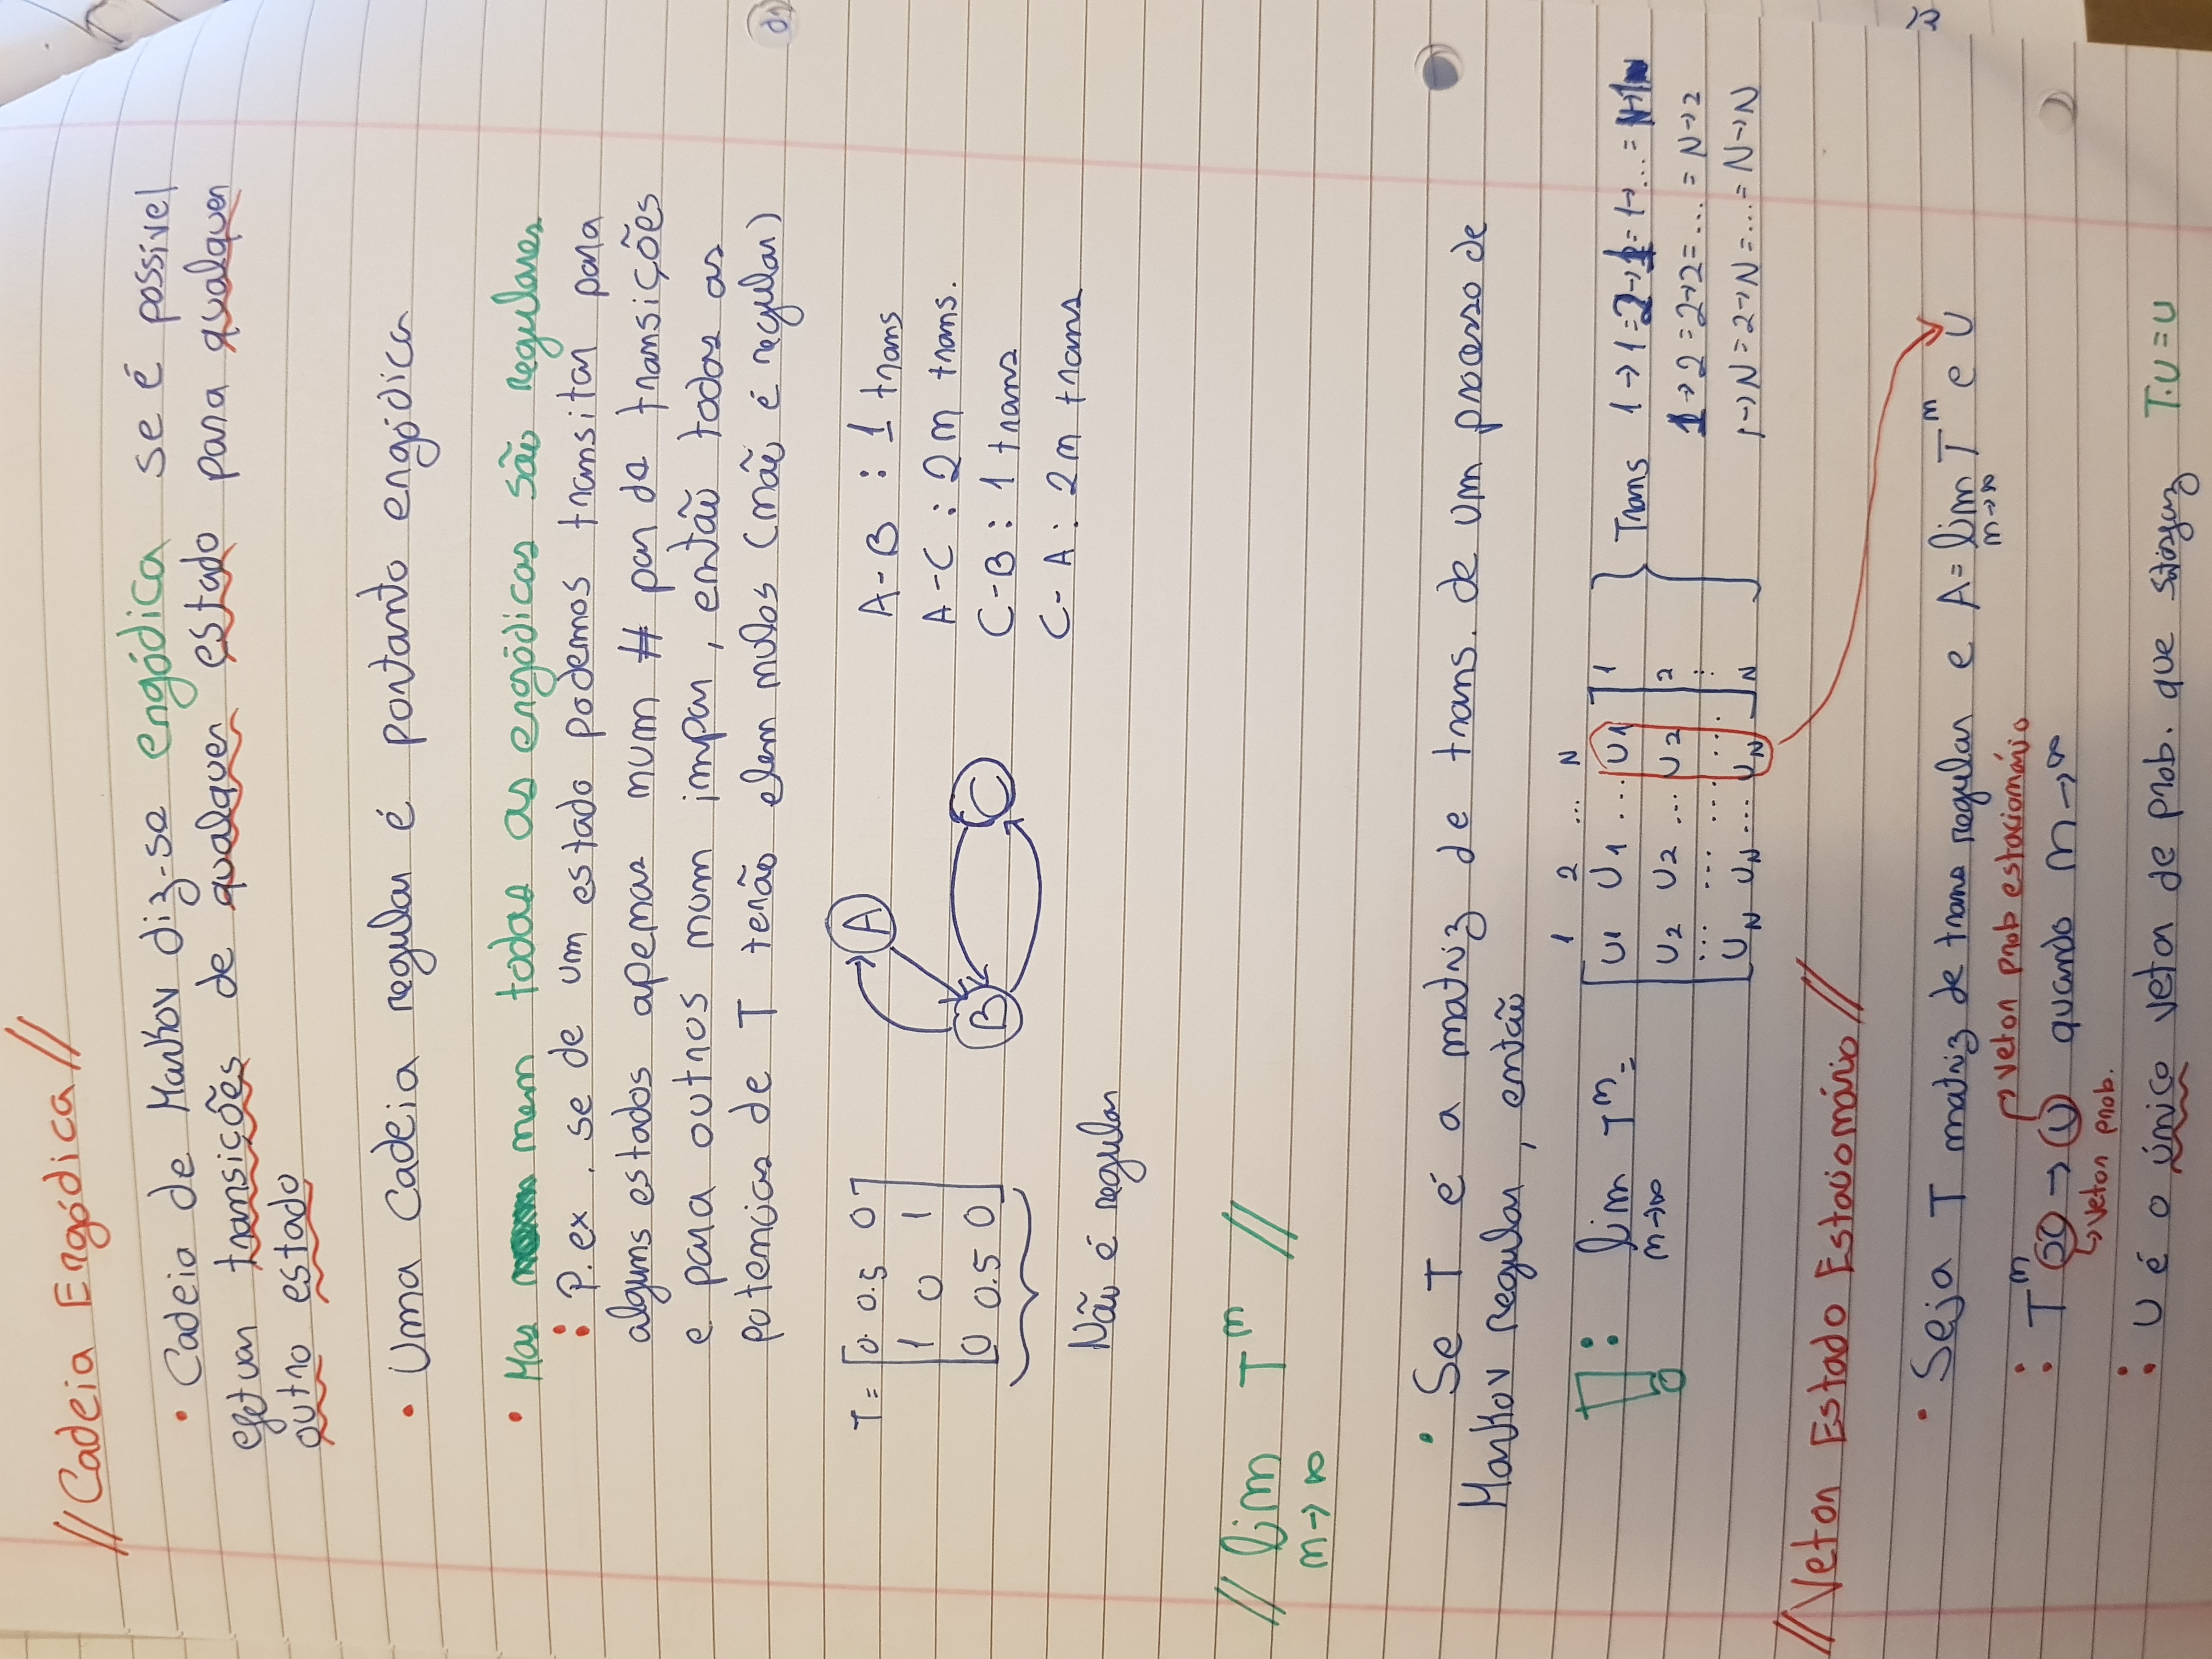 //Cadeia Ergódica//
• Cadeia de Markov diz-se ergódica se é possivel
efetuar transições de qualquer estado para qualquer
outro estado
• Uma Cadeia regular é portanto ergódica
• Mas nem todas as ergódicas são regulares
: P.ex. se de um estado podemos transitar para
alguns estados apenas num # par de transições
e para outros num impar, então todas as
potencias de T terão elem nulos (não é regular)
T = [0 0.5 0
1 0 1
0 0.5 0]
Não é regular
A
B
C
A-B : 1 trans
A-C : 2n trans.
C-B : 1 trans
C-A : 2n trans
// lim T^n //
n→∞
• Se T é a matriz de trans. de um processo de
Markov regular, então
1 2 ... N
! : lim T^n = [U1 U1 ... U1] 1
n→∞
U2 U2 ... U2 2
... ... ... ... ⋮
UN UN ... UN N
Trans 1→1=2→1=1→...=N→1
1→2=2→2=...=N→2
1→N=2→N=...=N→N
//Vetor Estado Estacionário//
• Seja T matriz de trans regular e A=lim T^n e U
n→∞
vetor prob estacionário
: T^n → U quando n→∞
vetor prob.
: U é o único vetor de prob. que satisfaz T.U=U